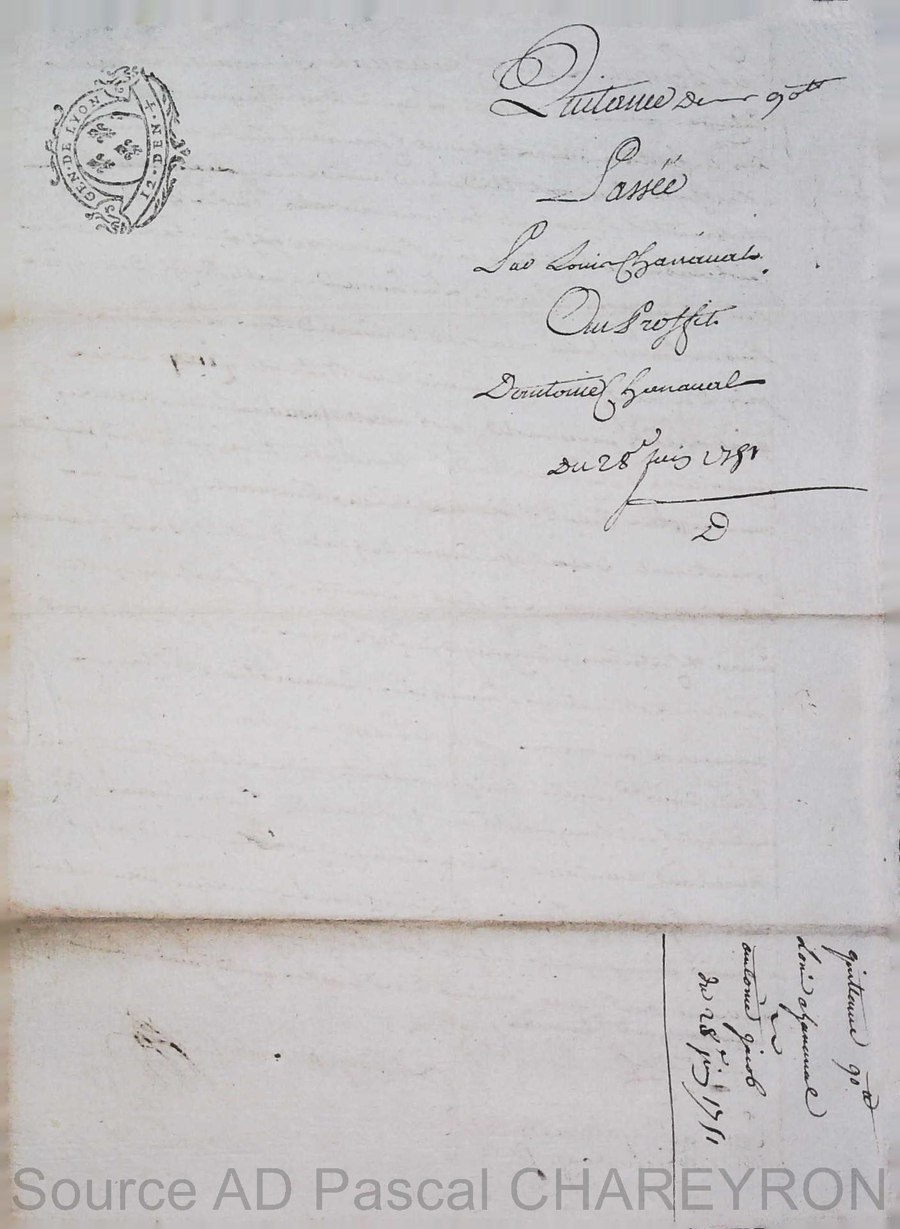 GEN · DE LYON
12 · DEN · 4
Quitance de 90ₗₗ
Passée
Par Louis Chanaval
Au Proffit
D'antoine Chanaval
Du 28e juin 1751
D
quittance 90
Louis chanaval
antoine
du 28e juin 1751
Source AD Pascal CHAREYRON